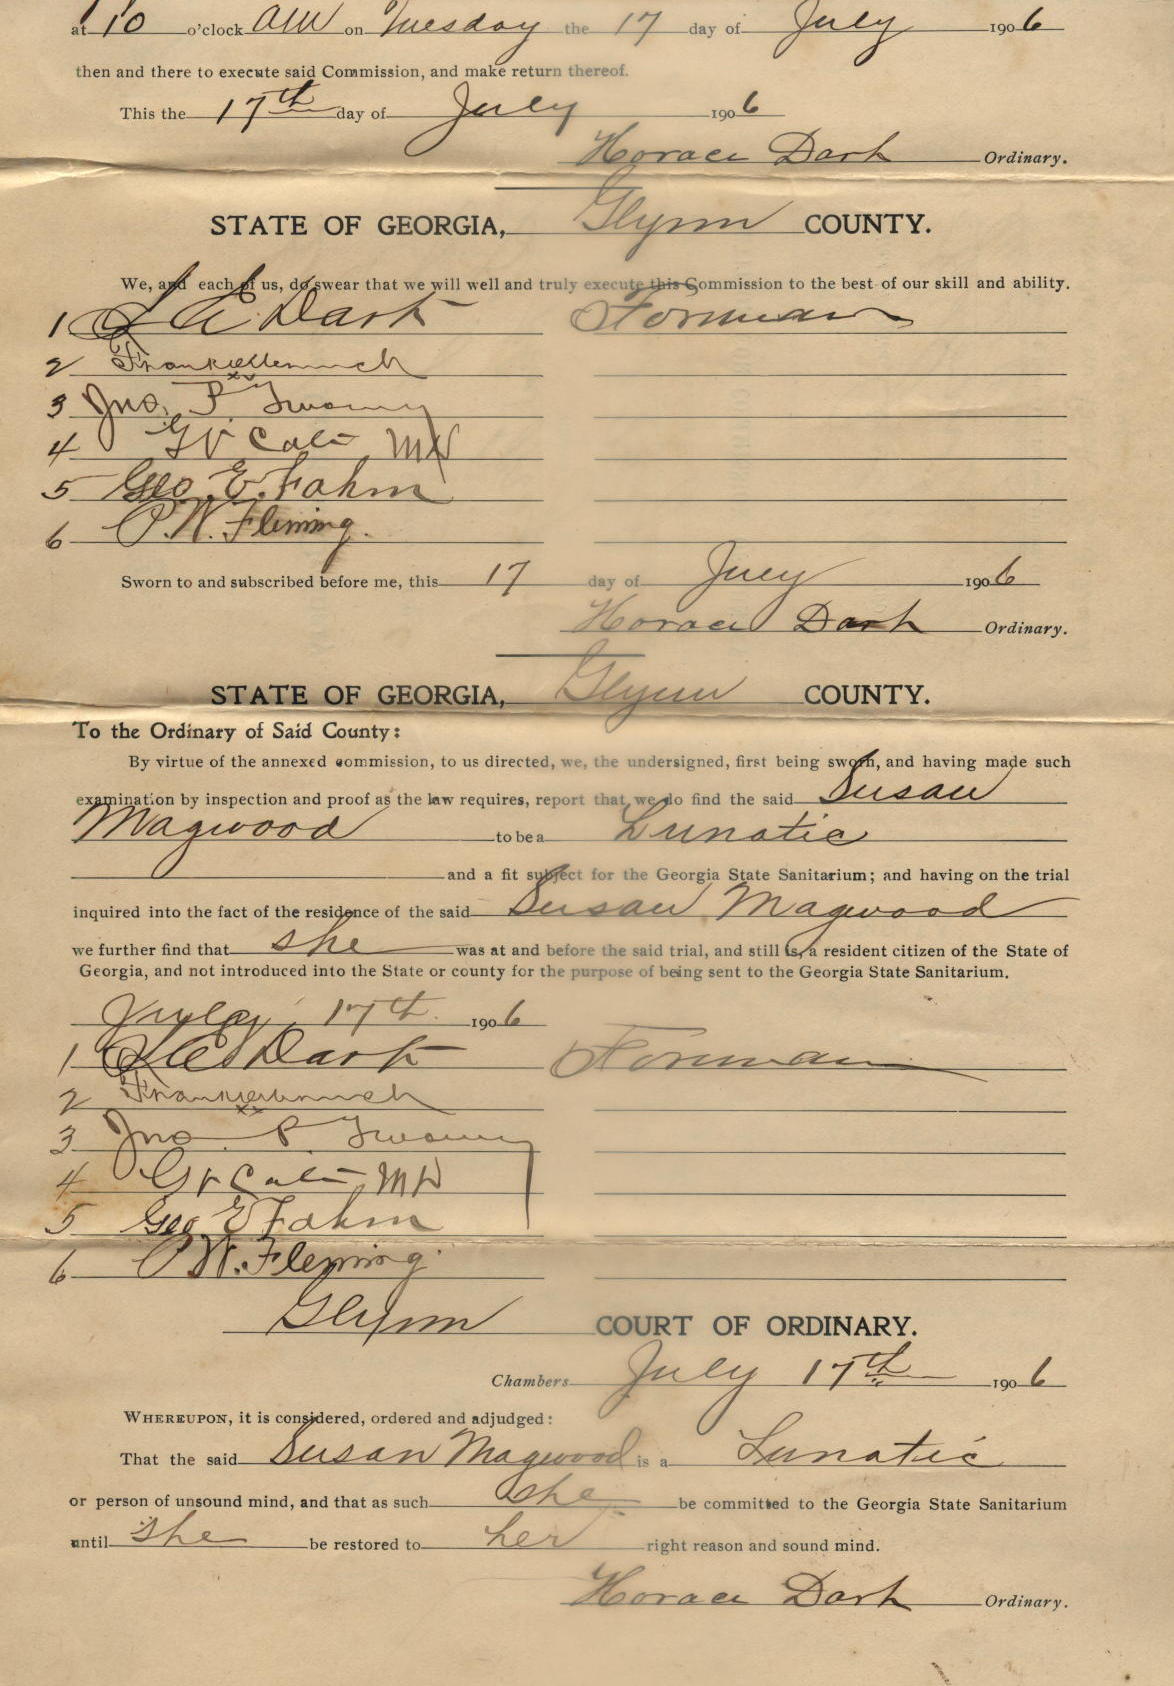 at 10 o'clock AM on Tuesday the 17 day of July 1906
then and there to execute said Commission, and make return thereof.
This the 17th day of July 1906
Horace Dart Ordinary.
STATE OF GEORGIA, Glynn COUNTY.
We, and each of us, do swear that we will well and truly execute this Commission to the best of our skill and ability.
1 Dart Foreman
2
3 Jno. P. Twomey
4 Cate MD
5 Geo. E. Fahm
6 P.W. Fleming.
Sworn to and subscribed before me, this 17 day of July 1906
Horace Dart Ordinary.
STATE OF GEORGIA, Glynn COUNTY.
To the Ordinary of Said County:
By virtue of the annexed commission, to us directed, we, the undersigned, first being sworn, and having made such
examination by inspection and proof as the law requires, report that we do find the said Susan
Magwood to be a Lunatic
and a fit subject for the Georgia State Sanitarium; and having on the trial
inquired into the fact of the residence of the said Susan Magwood
we further find that she was at and before the said trial, and still is, a resident citizen of the State of
Georgia, and not introduced into the State or county for the purpose of being sent to the Georgia State Sanitarium.
July 17th 1906
1 Dart Foreman
2
3 Jno P. Twomey
4 Cate MD
5 Geo E Fahm
6 P.W. Fleming.
Glynn COURT OF ORDINARY.
Chambers July 17th 1906
WHEREUPON, it is considered, ordered and adjudged:
That the said Susan Magwood is a Lunatic
or person of unsound mind, and that as such she be committed to the Georgia State Sanitarium
until she be restored to her right reason and sound mind.
Horace Dart Ordinary.